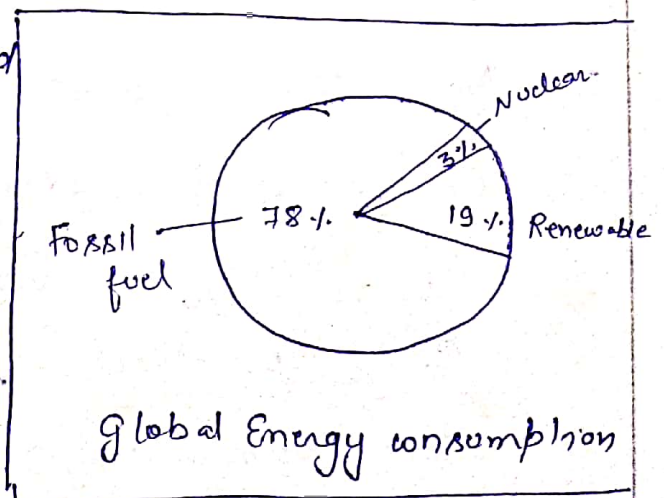 Nuclear
3%
78%
19%
Renewable
Fossil
fuel
Global Energy consumption